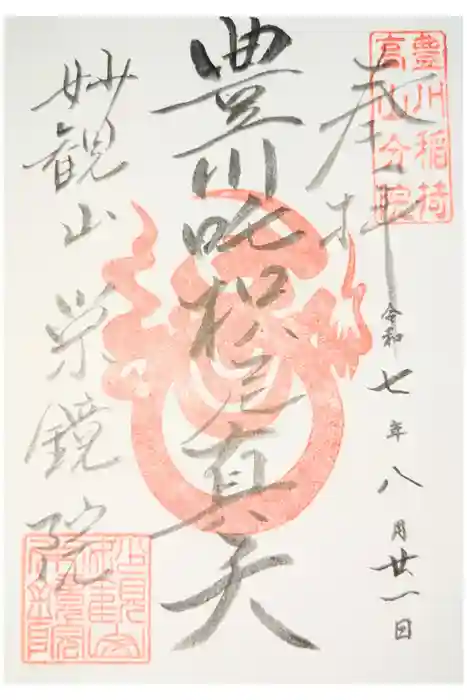 奉拝
豊川稲荷
高山分院
令和七年八月廿一日
豊川吒枳尼真天
妙観山 栄鏡院